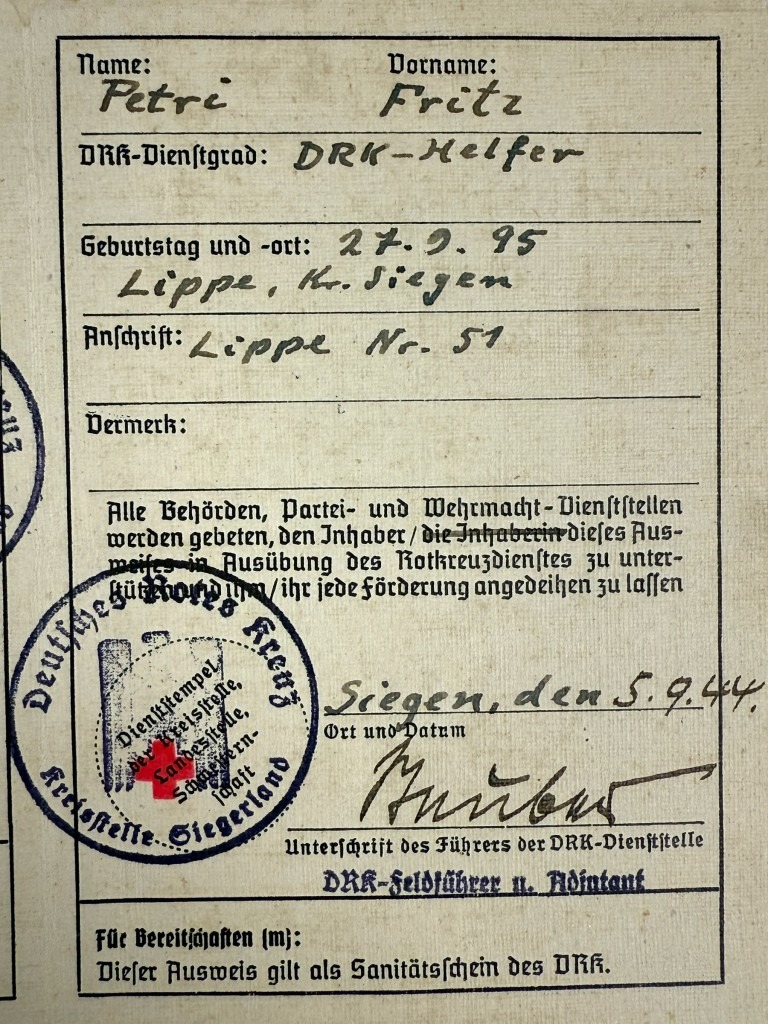 Name: Vorname:
Petri Fritz
DRK-Dienstgrad: DRK-Helfer
Geburtstag und -ort: 27.9.95
Lippe, Kr. Siegen
Anschrift: Lippe Nr. 51
Vermerk:
Alle Behörden, Partei- und Wehrmacht-Dienststellen
werden gebeten, den Inhaber/die Inhaberin dieses Aus-
weises in Ausübung des Rotkreuzdienstes zu unter-
stützen und ihm/ihr jede Förderung angedeihen zu lassen
Deutsches Rotes Kreuz
Kreisstelle Siegerland
Dienststempel
der Kreisstelle,
Landesstelle,
Schwestern-
schaft
Siegen, den 5.9.44.
Ort und Datum
Unterschrift des Führers der DRK-Dienststelle
DRK-Feldführer u. Adjutant
Für Bereitschaften (m):
Dieser Ausweis gilt als Sanitätsschein des DRK.